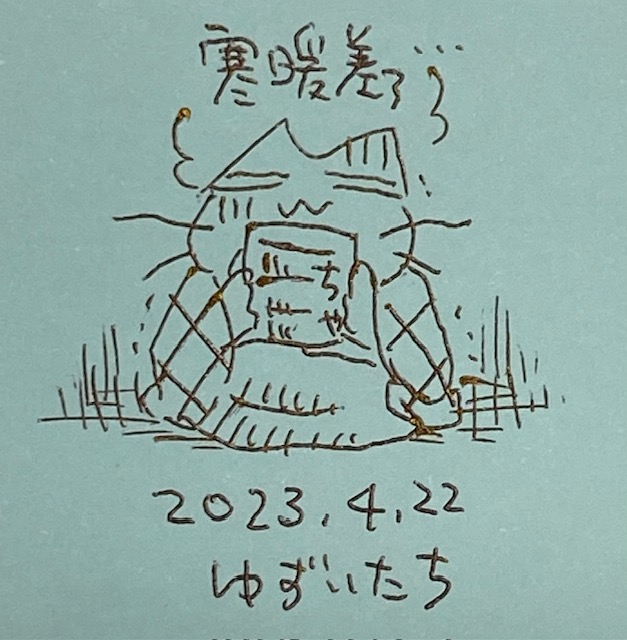 寒暖差…
2023.4.22
ゆずいたち